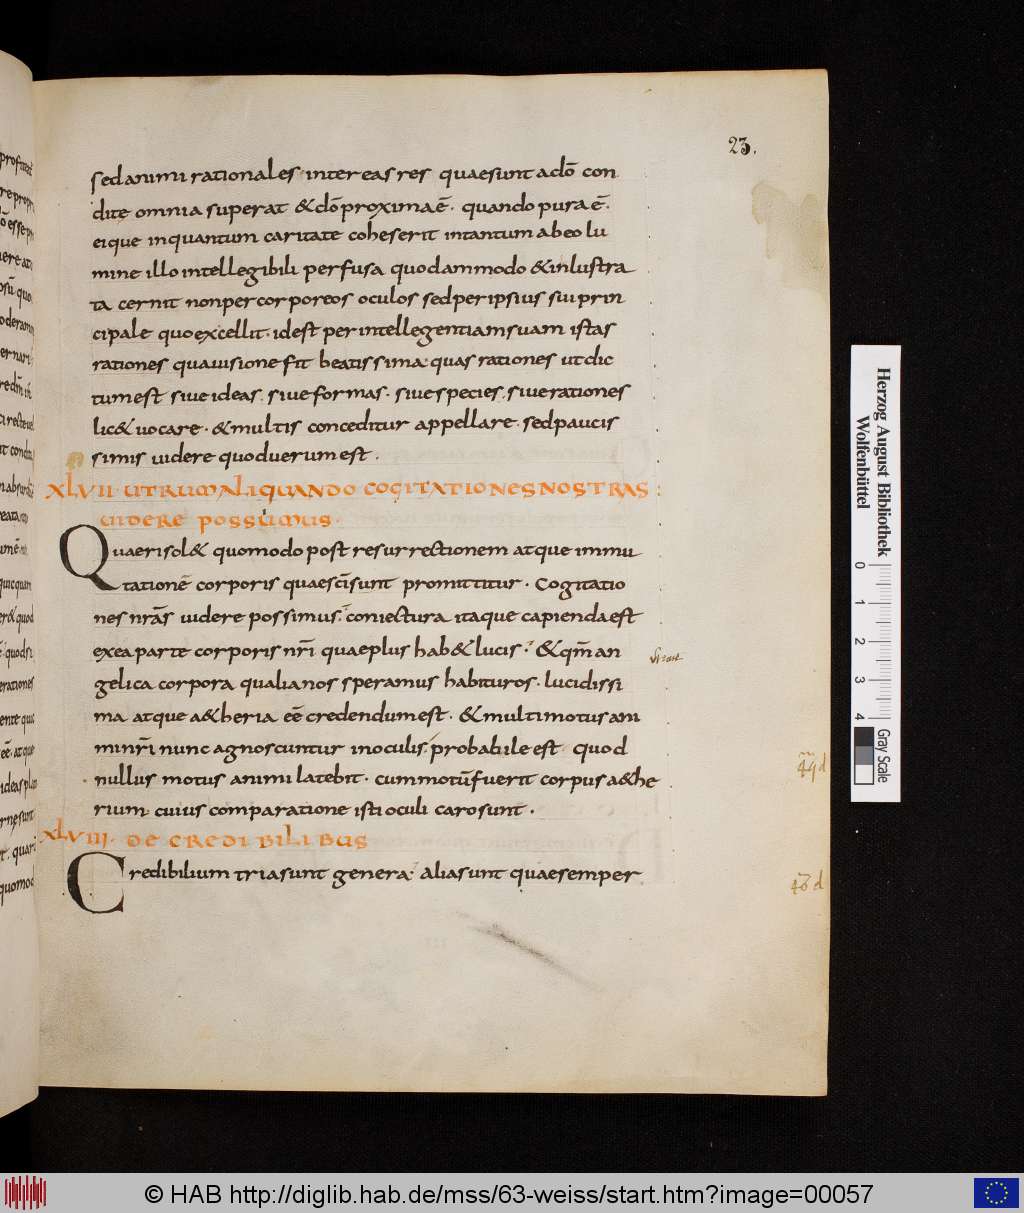 23.
sed animi rationales · inter eas res quae sunt a dō con
dite omnia superat & dō proxima ē · quando pura ē ·
eique inquantum caritate coheserit intantum ab eo lu
mine illo intellegibili perfusa quodammodo & inlustra
ta cernit non per corporeos oculos sed per ipsius sui prin
cipale quo excellit · id est per intellegentiam suam istas
rationes qua uisione fit beatissima · quas rationes ut dic
tum est siue ideas · siue formas · siue species · siue rationes
lic& uocare · & multis conceditur appellare · sed paucis
simis uidere quod uerum est ·
XLVII · UTRUM ALIQUANDO COGITATIONES NOSTRAS
UIDERE POSSUMUS ·
Quaeri sol& quomodo post resurrectionem atque immu
tationē corporis quae sc̄is sunt promittitur · Cogitatio
nes nrās uidere possimus · coniectura itaque capienda est
ex ea parte corporis nr̄i quae plus hab& lucis · & qm̄ an
gelica corpora qualia nos speramus habituros · lucidissi
ma atque a&heria eē credendum est · & multi motus ani
mi nr̄i nunc agnoscuntur in oculis · probabile est quod
nullus motus animi latebit · cum motū fuerit corpus a&he
rium · cuius comparatione isti oculi caro sunt ·
XLVIII · DE CREDIBILIBUS
Credibilium tria sunt genera · alia sunt quae semper
Herzog August Bibliothek
Wolfenbüttel
0 1 2 3 4
Gray Scale
© HAB http://diglib.hab.de/mss/63-weiss/start.htm?image=00057